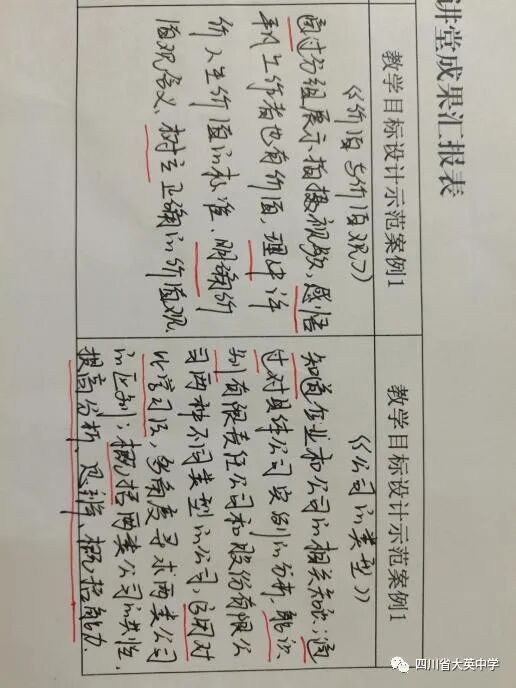 讲堂成果汇报表
教学目标设计示范案例1
《价值与价值观》
通过分组展示拍摄视频,感悟
平凡工作者也有价值,理由评
价人生价值的标准、明确价
值观含义,树立正确的价值观
教学目标设计示范案例1
《公司的类型》
知道企业和公司的相关知识;通
过对具体公司实例的分析,能识
别有限责任公司和股份有限公
司两种不同类型的公司,运用对
比学习法,多角度寻求两类公司
的区别;概括两类公司的共性,
提高分析、思辨、概括能力.
四川省大英中学